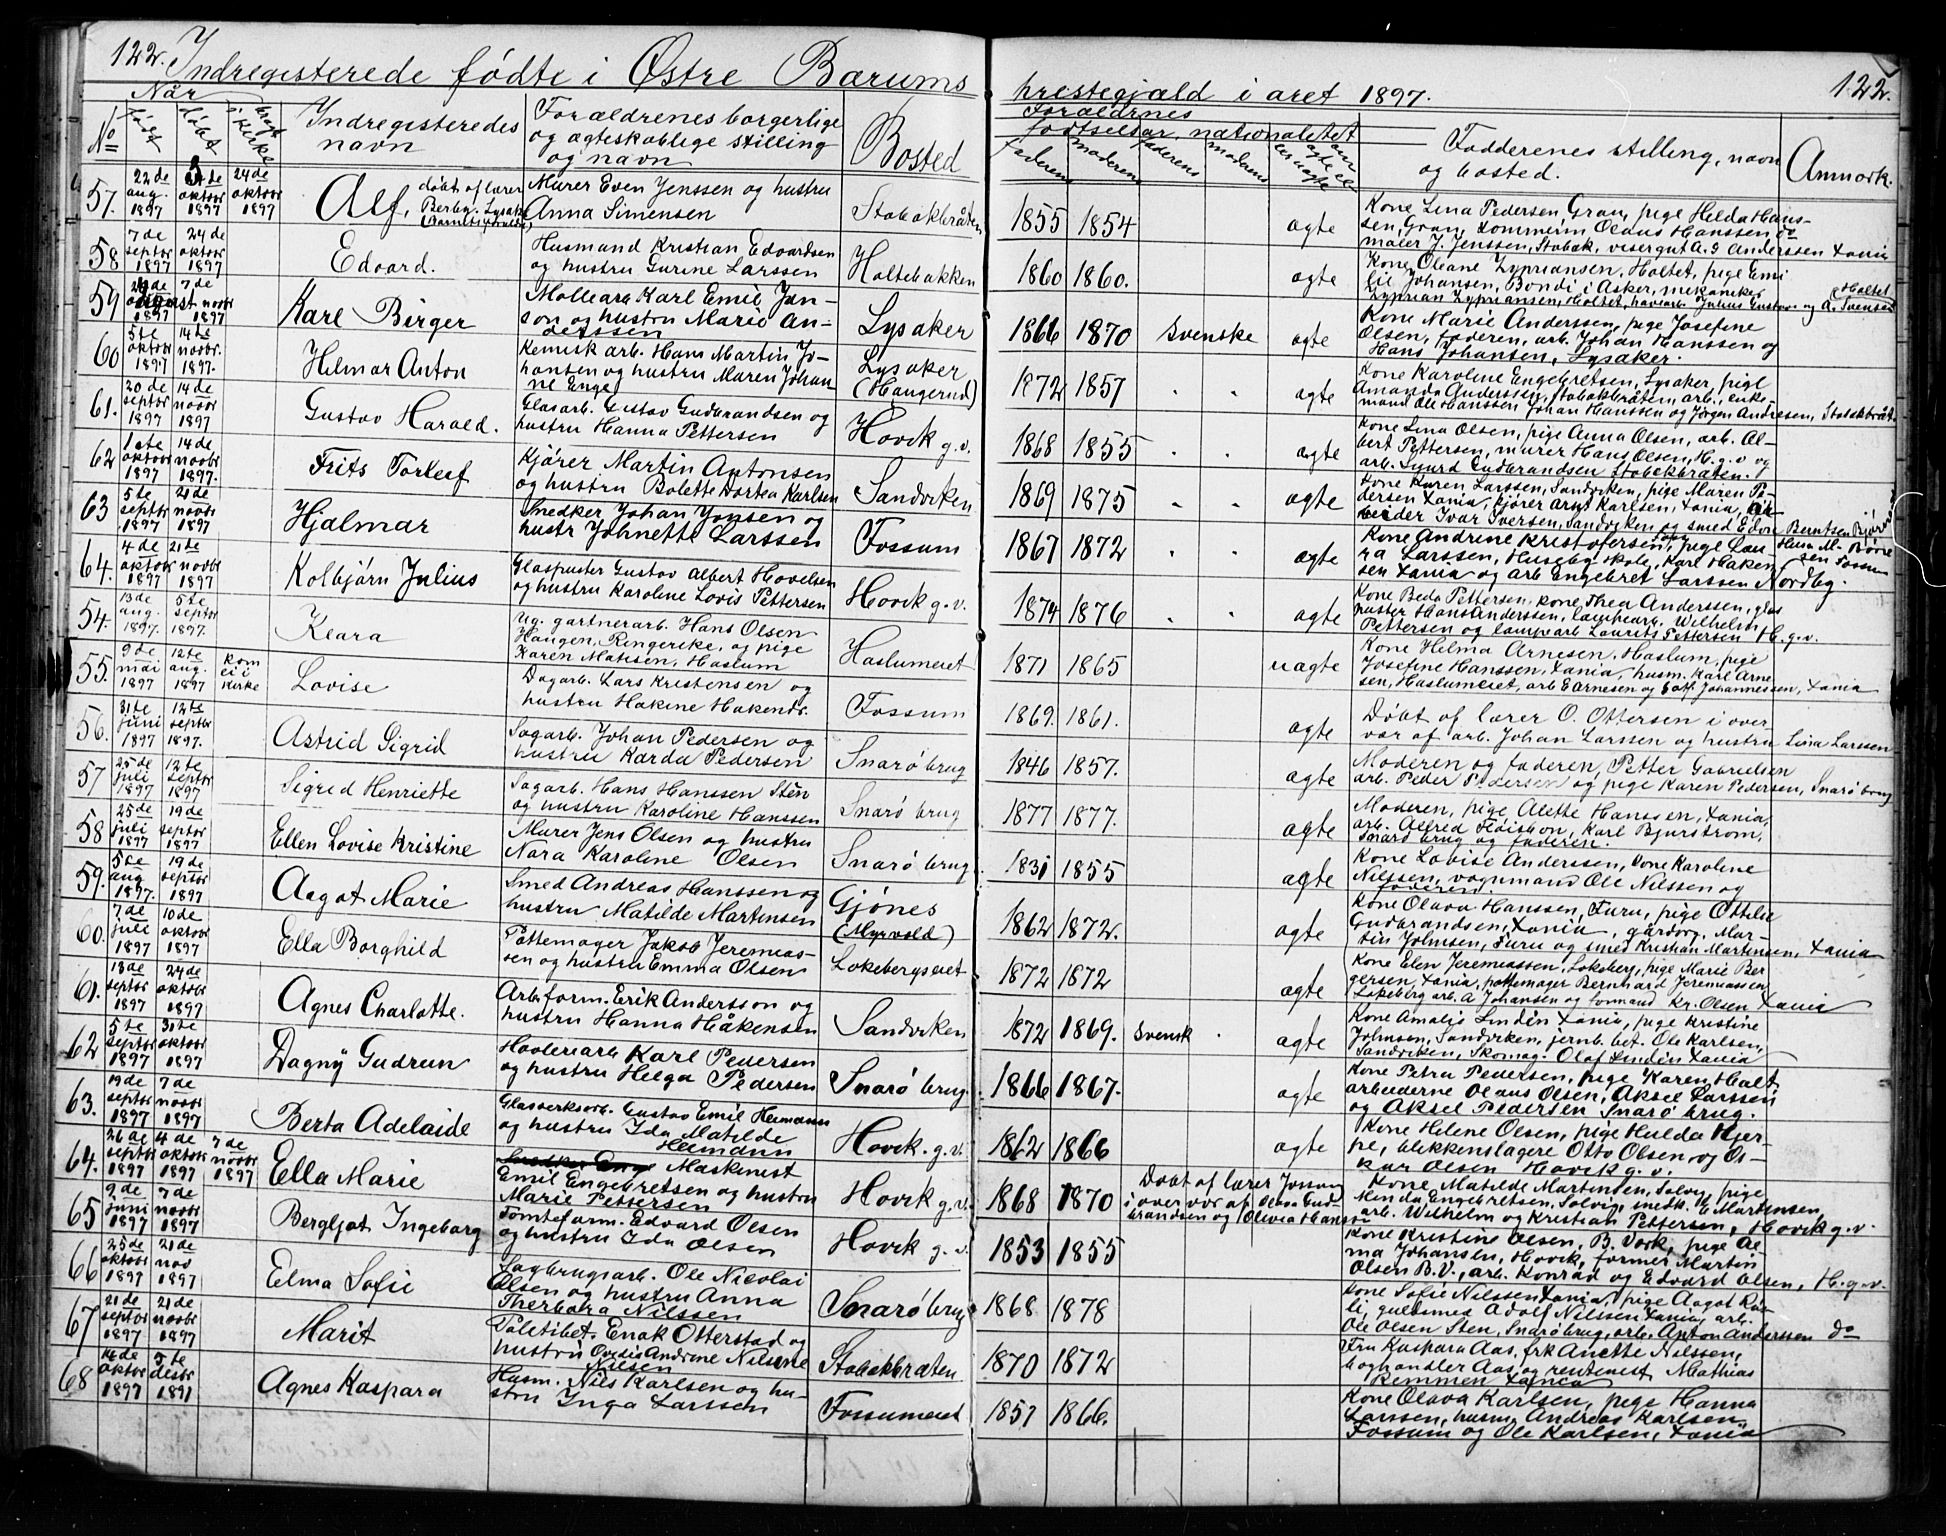 122. Indregisterede fødte i Østre Bærums
præstegjæld i aret 1897. 122.
Når
No født døbt bragt i kirke Indregisteredes navn Forældrenes borgerlige og ægteskablige stilling og navn Bosted
Forældrenes
fødselsår, nationalitet
faderens moderens faderens moderens Fadderenes stilling, navn og bosted. Anmærk.
57. 22de aug. 1897 3de oktobr 1897 24de oktobr 1897 Alf, døbt af lærer Berby. Lysaker Murer Even Jenssen og hustru Anna Simensen Stabækbråten 1855 1854 ægte Kone Lina Pedersen, Gran, pige Hilda Hanssen, Gran, tømmerm. Olaus Hanssen do maler J. Jenssen, Stabæk, visergut A. I. Anderssen Xania
58 7de septbr 1897 24de oktobr 1897 Edvard. Husmand Kristian Edvardsen og hustru Gurine Larssen Holtebakken 1860 1860. ægte Kone Oleane Zypriansen, Holtet, pige Emilie Johansen, Bondi i Asker, mekaniker Zyprian Zypriansen, Holtet, Julius Gustav og A. Svensen Holtet
59 7de novbr 1897 Karl Birger Møllearb Karl Emil Janson og hustru Marie Anderssen Lysaker 1866 1870 Svenske ægte Kone Marie Anderssen, pige Josefine Olsen, faderen, arb. Johan Hanssen og Hans Johansen, Lysaker.
60 5te oktobr 1897 14te novbr. 1897. Helmar Anton Kemisk arb. Hans Martin Johansen og hustru Maren Johanne Enge Lysaker (Haugerud) 1872 1857 " " ægte Kone Karoline Engebretsen, Lysaker, pige Amanda Anderssen, Stabækbråten, arb., enkemand Ole Hanssen Johan Hanssen og Jørgen Andresen, Stabækbråt.
61. 20de septbr 1897 14de novbr 1897 Gustav Harald. Glasarb. Gustav Gudbrandsen og hustru Hanna Pettersen Høvik g.v. 1868 1855 " " ægte Kone Lina Olsen, pige Anna Olsen, arb. Albert Pettersen, murer Hans Olsen, H.g.v og arb. Sjurd Gudbrandsen Stabækbråten.
62 1ste oktobr 1897 14de novbr 1897. Frits Torleif Kjører Martin Antonsen og hustru Bolette Dortea Karlsen Sandviken 1869 1875 " " ægte Kone Karen Larssen, Sandviken, pige Maren Pedersen Xania, kjører Karlsen, Xania, Arbeider Ivar Iversen, Sandviken og smed Edv. Berntsen
63 5te septbr 1897 21de novbr 1897 Hjalmar Snedker Johan Jonsen og hustr Johnette Larssen Fossum 1867 1872 " " ægte Kone Andrine Kristofersen, pige Laura Larssen, Huseby skole, Karl Hakensen Xania og arb Engebret Larssen Nordby.
64. 4de oktobr 1897 21te novbr 1897 Kolbjørn Julius Glaspuster Gustav Albert Hovelsen og hustru Karoline Lovis Pettersen Høvik g.v. 1874 1876 " " ægte Kone Beda Pettersen, kone Thea Anderssen, glaspuster Hans Anderssen, lampearb. Wilhelm Pettersen og lampearb Laurits Pettersen H.g.v.
54. 13de aug. 1897. 5te septbr 1897. Klara Ug. gartnerarb. Hans Olsen Haugen, Ringerike, og pige Karen Matisen, Haslum Haslumeiet 1871 1865 uægte Kone Helma Arnesen, Haslum, pige Josefine Hanssen, Xania, husm. Karl Arnesen, Haslumeiet, arb E Arnesen og Johannessen, Xania
55. 9de mai 1897 12te aug. 1897 kom ei i kirke Lovise Dagarb. Lars Kristensen og hustru Hakine Hakensdr. Fossum 1869. 1861. ægte Døbt af lærer O. Ottersen i overvær af arb. Johan Larssen og hustru Lina Larssen
56. 31te juni 1897 12te septbr 1897. Astrid Sigrid Sagarb. Johan Pedersen og hustru Karda Pedersen Snarøbrug 1846 1857. ægte Moderen og faderen, Petter Gabrielsen arb. Peder Pedersen og pige Karen Pedersen, Snarøbrug
57 25de juli 1897 12te septbr 1897 Sigred Henriette Sagarb. Hans Hanssen Sten og hustru Karoline Hanssen Snarø brug 1877 1877. ægte Moderen, pige Alette Hanssen, Xania, arb. Alfred Karl Bjurstrom, Snarø brug og faderen.
58 25de juli 1897 19de septbr 1897 Ellen Lovise Kristine Murer Jens Olsen og hustru Nara Karoline Olsen Snarø brug 1831 1855 ægte Kone Lovise Anderssen, kone Karoline Nilssen, vognmand Ole Nilssen og faderen.
59. 5te aug 1897. 19de septbr 1897 Aagot Marie Smed Andreas Hanssen og hustru Matilde Martinsen Gjønes (Myrvold) 1862 1872. ægte Kone Olava Hanssen, Furu, pige Ottilie Gudbrandsen, Xania, gårdbrg. Martin Johnsen, Furu og smed Kristian Martinsen, Xania
60. 7de juli 1897 10de oktobr 1897 Ella Borghild Pottemager Jakob Jeremiassen og hustru Emma Olsen Løkebergseiet 1872 1872 ægte Kone Elen Jeremiassen, Løkeberg, pige Marie Bergersen, Xania, pottemager Bernhard Jeremiassen Løkeberg arb. A Johansen og formand Kr. Olsen Xania
61. 13de septbr 1897 24de oktobr 1897 Agnes Charlotte. Arb.form. Erik Andersson og hustru Hanna Håkensen Sandviken 1872 1869. Svensk " ægte Kone Amalie Lindén Xania, pige Kristine Johnsen, Sandviken, jernb. bet. Ole Karlsen, Sandviken, Skomag. Olaf Lindén Xania
62 5te septbr 1897 31te oktobr 1897 Dagny Gudrun Høvleriarb Karl Pedersen og hustru Helga Pedersen Snarø brug 1866 1867. ægte Kone Petra Pedersen, pige Karen Holt arbeiderne Olaus Olsen, Aksel Larssen og Aksel Pedersen Snarø brug.
63. 19de septbr 1897 7de novbr 1897 Berta Adelaide Glasverksarb. Gustav Emil Heimann og hustru Ida Matilde Heimann Høvik. g.v. 1862 1866 ægte Kone Helene Olsen, pige Hulda Hjerpe, blikkenslagere Otto Olsen og Oskar Olsen Høvik g.v.
64. 26de septbr 1897 4de oktobr 1897 7de novbr 1897 Ella Marie Maskinist Emil Engebretsen og hustru Marie Pettersen Høvik g.v. 1868 1870 Døbt af lærer Jossang i overvær af Olava Gudbrandsen og Olivia Hansen Kone Matilde Martinsen, Solvig pige Minda Engebretsen, Solvig, snedk. E Martinsen arb. Wilhelm og Kristian Pettersen, Høvik g.v.
65 9de juni 1897 7de novbr 1897 Bergljot Ingeborg Tomteform. Edvard Olsen og hustru Ida Olsen Høvik g.v. 1853 1855 Kone Kristine Olsen, B. Værk, pige Alma Johansen, Høvik, former Martin Olsen B.V., arb. Konrad og Edvard Olsen, H.g.v.
66 25de oktobr 1897 21de nov 1897 Elma Sofie Sagbrugsarb. Ole Nicolai Olsen og hustru Anna Therbora Nilssen Snarøbrug 1868 1878 Kone Sofie Nilssen Xania, pige Aagot Roli, guldsmed Adolf Nilssen Xania, arb. Ole Olsen Sten, Snarøbrug, arb. Anton Anderssen do
67 21de septbr 1897 21de novbr 1897 Marit Politibet. Enok Otterstad og hustru Ovedis Andrine Nilsine Nilsen Stabækbråten 1870 1872 Fru Kaspara Aas, frk Anette Nilssen, boghandler Aas og rentenist Mathias Remmen Xania
68 14de oktobr 1897 5te desbr 1897 Agnes Kaspara Husm. Nils Karlsen og hustru Inga Larssen Fossumeiet 1857 1866. Kone Olava Karlsen, pige Hanna Larssen, husm. Andreas Karlsen Fossum og Ole Karlsen, Xania